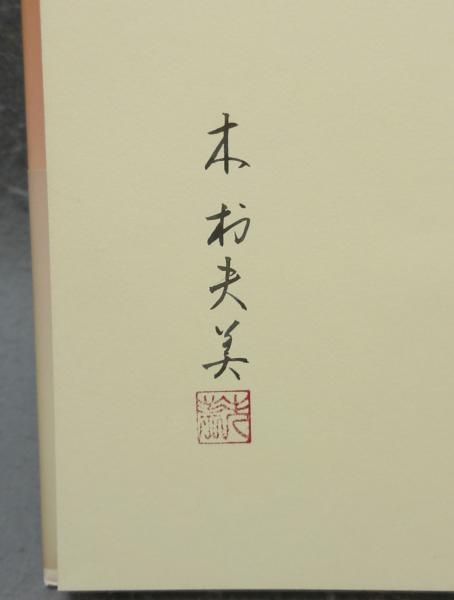 木村夫美